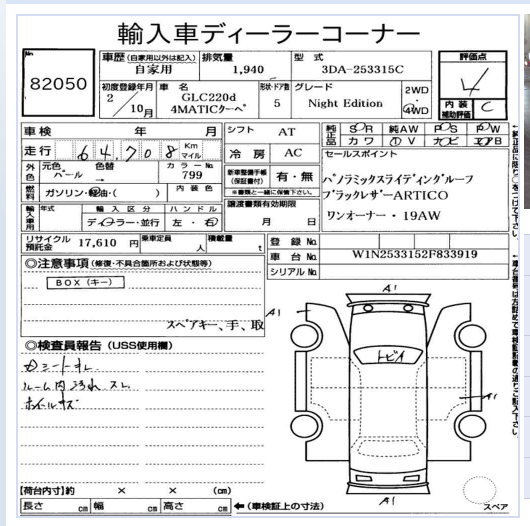 輸入車ディーラーコーナー
No.
82050
車歴 (自家用以外は記入)
自家用
排気量
1,940
型式
3DA-253315C
評価点
4
内装補助評価
C
初度登録年月
2 / 10月
車名
GLC220d
4MATICクーペ
形状・ドア数
5
グレード
Night Edition
2WD
4WD
車検 年 月
シフト AT
純正品
SR 純AW PS PW
カワ TV ナビ エアB
走行 64,708 Km マイル
冷房 AC
セールスポイント
パノラミックスライディングルーフ
ブラックレザーARTICO
ワンオーナー・19AW
外色
元色 色替
パール →
カラーNo.
799
新車整備手帳
(保証書付)
有・無
※書類と一緒に保管下さい。
燃料
ガソリン・軽油・( )
内装色
譲渡書類有効期限
月 日
輸入車用
年式
輸入区分
ディーラー・並行
ハンドル
左・右
リサイクル預託金
17,610 円
乗車定員
人
積載量
t
登録No.
車台No.
W1N2533152F833919
シリアルNo.
◎注意事項 (修復・不具合箇所および状態等)
BOX (キー)
スペアキー、手、取
A1
A1
トビイ
A1
A1
◎検査員報告 (USS使用欄)
ルーム内汚れ スレ
ホイルキズ
【荷台内寸】約 × × (cm)
長さ cm 幅 cm 高さ cm
←(車検証上の寸法)
スペア